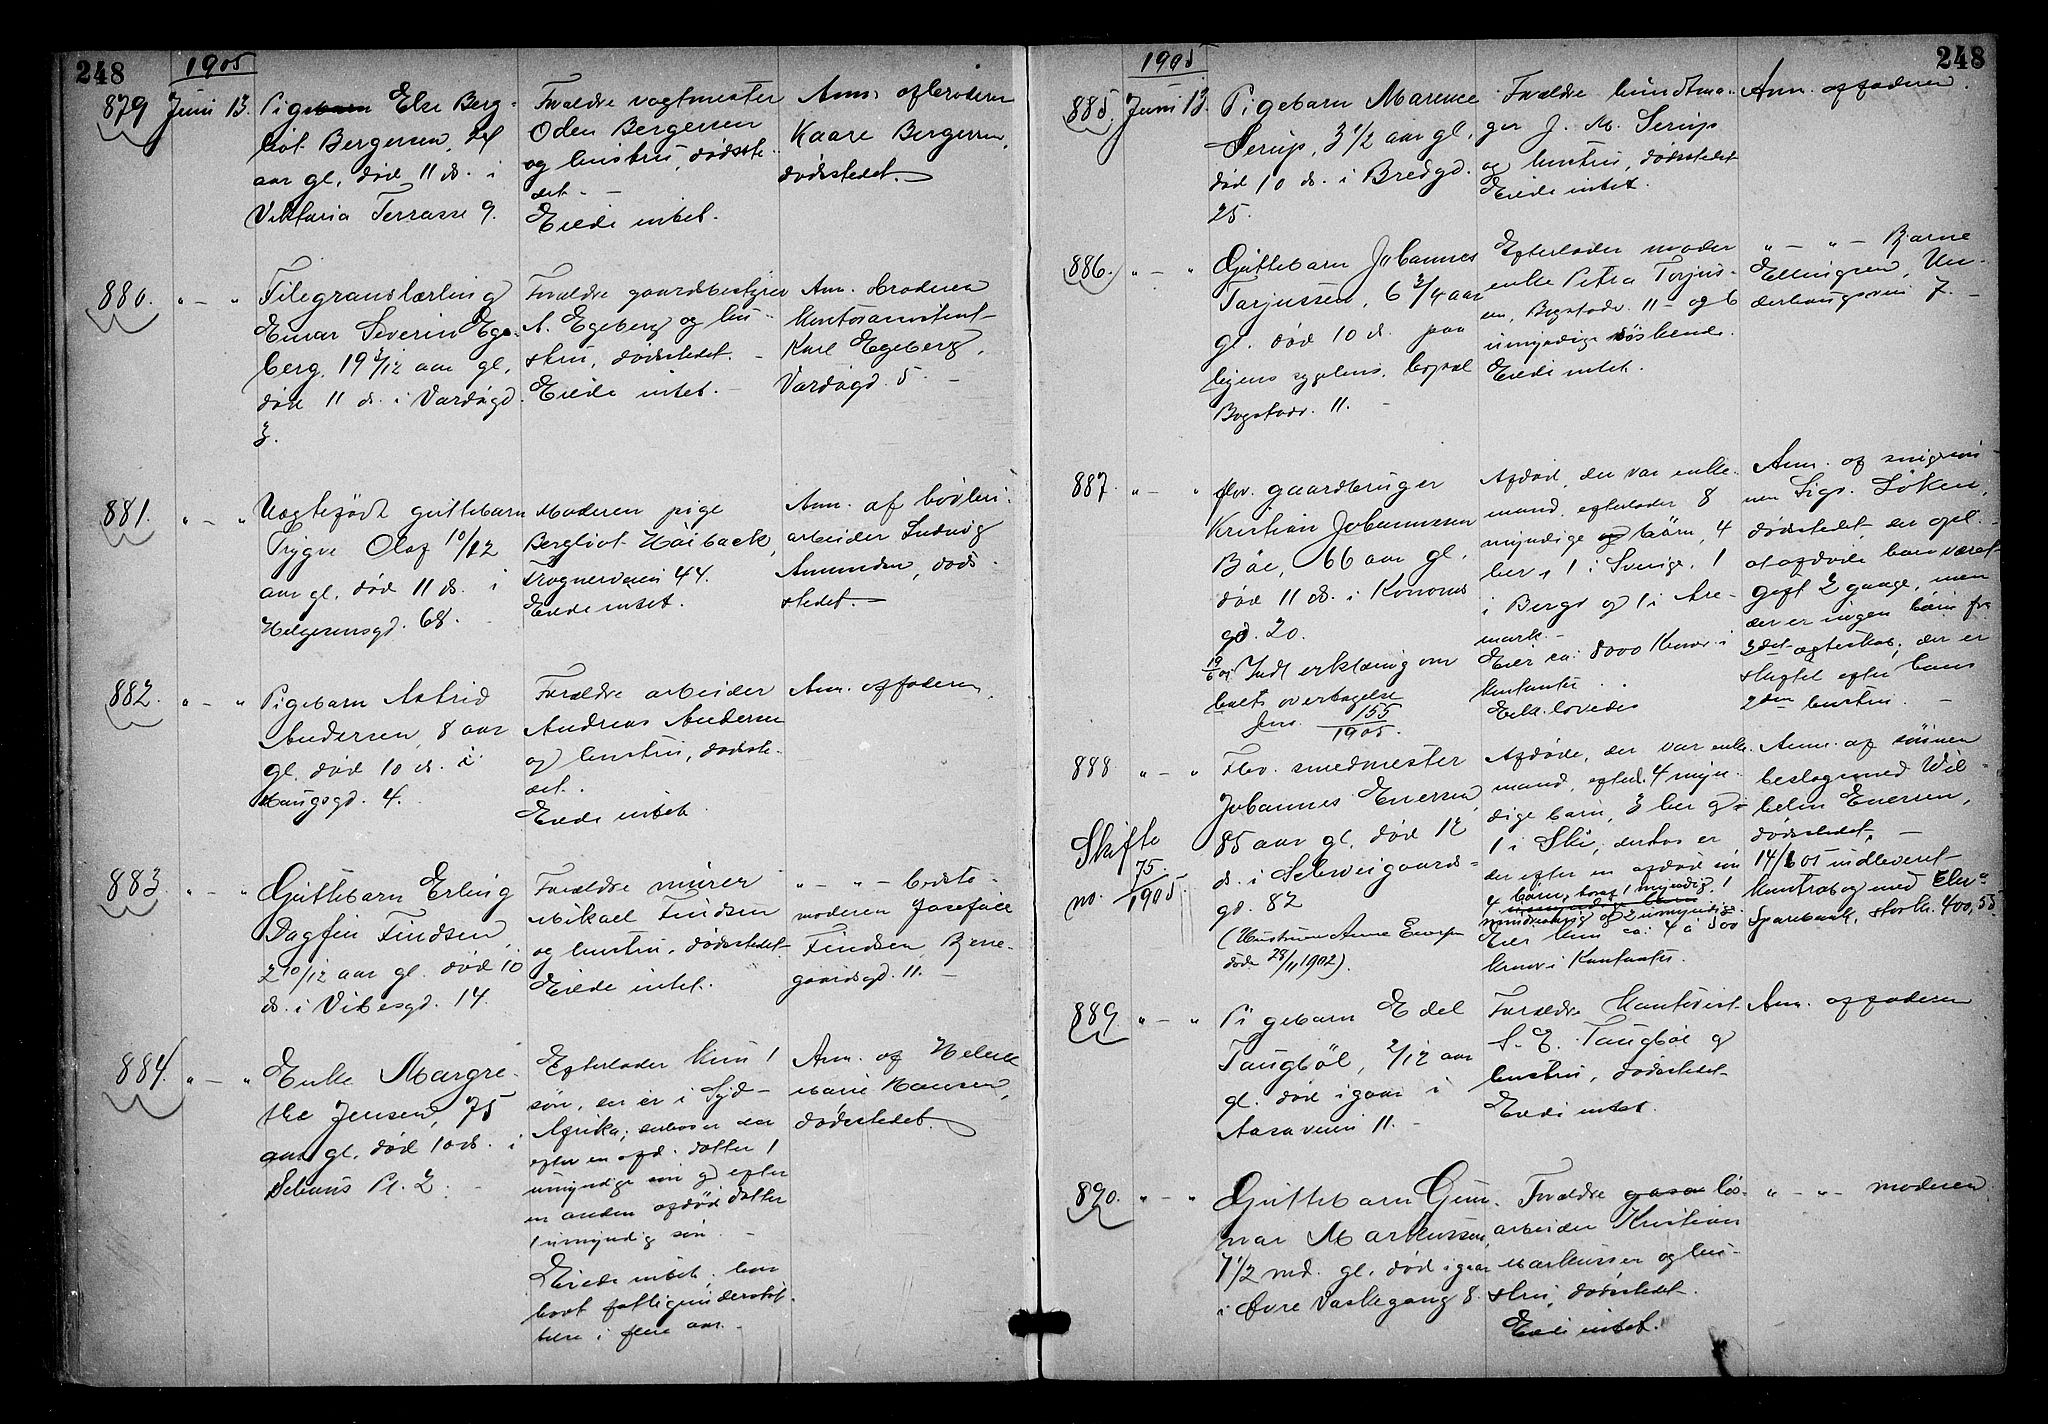 248
1905
879
Juni 13.
Pigebarn Else Berg-
liot Bergersen,
aar gl., død 11 ds. i
Viktoria Terrasse 9.
Forældre vagtmester
Oden Bergersen
og hustru, dødsste-
det. -
Eiede intet.
Anm. af broderen
Kaare Bergersen,
dødsstedet.
880.
" - "
Filegranslærling
Einar Severin Ege-
berg, 19 3/12 aar gl.,
død 11 ds. i Vardøgd.
3.
Forældre gaardbestyrer
A. Egeberg og hu-
stru, dødsstedet. -
Eiede intet. -
Anm. broderen
kontorassistent
Karl Egeberg,
Vardøgd. 5. -
881.
" - "
Uægtefødt guttebarn
Trygve Olaf 10/12
aar gl., død 11 ds. i
Helgesensgd. 68.
Moderen pige
Bergliot Høiback,
Frognerveien 44.
Eiede intet.
Anm. af
arbeider Ludvig
Amundsen, døds-
stedet.
882.
" - "
Pigebarn Astrid
Andersen, 8 aar
gl. død 10 ds. i
Haugsgd. 4.
Forældre arbeider
Andreas Andersen
og hustru, dødsste-
det.
Eiede intet
Anm. af faderen.
883.
" - "
Guttebarn Erling
Dagfin Findsen,
2 10/12 aar gl. død 10
ds. i Vibesgd. 14.
Forældre murer
Mikael Findsen
og hustru, dødsstedet
Eiede intet.
" - " - bedste-
moderen Josefine
Findsen, Bjerre-
gaardsgd. 11. -
884.
" - "
Enke Margre-
the Jensen, 75
aar gl., død 10 ds. i
Schous Pl. 2.
Efterlader kun 1
søn, der er i Syd-
Afrika; derhos er der
efter en afd. datter 1
umyndige søn og efter
en anden afdød datter
1 umyndig søn. -
Eiede intet, har
havt fattigunderstøt-
telse i flere aar. -
Anm. af
Marie Hansen,
dødsstedet.
248
1905
885.
Juni 13.
Pigebarn Marence
Serup, 3 1/2 aar gl.,
død 10 ds. i Bredgd.
25.
Forældre
ger J. M. Serup
og hustru, dødsstedet
Eiede intet.
Anm. af faderen.
886.
" - "
Guttebarn Johannes
Torjussen, 6 3/4 aar
gl. død 10 ds. paa
byens sygehus, bopæl
Bogstadv. 11. -
Efterlader moder
enke Petra Torjus-
sen, Bogstadv. 11 og 6
umyndige søskende.
Eiede intet.
" - " - Bjarne
Ellingsen, Un-
derhaugsvei 7. -
887.
" - "
fhv. gaardbruger
Kristian Johannessen
Bøe, 66 aar gl.
død 11 ds. i Konows
gd. 20.
19/6 05 Indl. erklæring om
boets overtagelse
Jnr. 155/1905.
Afdød, der var enke-
mand, efterlader 8
myndige børn, 4
her, 1 i Sverige, 1
i Berg og 1 i Are-
mark. -
Eier ca. 8000 kroner i
kontanter.
Eie lovedes
Anm. af svigersøn-
nen Sigv. Løken,
dødsstedet, der opl.
at afdøde har været
gift 2 gange, men
der er ingen børn fra
2det ægteskab, der er
skiftet efter hans
2den hustru. -
888
" - "
Skifte
no. 75/1905.
Fhv. smedmester
Johannes Enersen
85 aar gl. død 12
ds. i Schweigaards-
gd. 82
(Hustruen Anne Enersen
døde 28/11 1902).
Afdøde, der var enke-
mand, efterl. 4 myn-
dige børn, 3 her og
1 i Ski, derhos er
der efter en afdød søn
4 børn, hvoraf 1 myndig, 1
mindreaarig og 2 umyndige.
Eier kun ca. 4 à 500
kroner i Kontanter.
Anm. af sønnen
beslagsmed Wil-
helm Enersen,
dødsstedet. -
14/6 05 indleveret
kontrabog med
Sparebank, stor kr. 400,55
889
" - "
Pigebarn Edel
Taugbøl, 2/12 aar
gl. død igaar i
Aasaveien 11. -
Forældre kontorist
S. E. Taugbøl og
hustru, dødsstedet
Eiede intet.
Anm. af faderen
890.
" - "
Guttebarn Gun-
nar Markussen,
7 1/2 md. gl. død igaar
i Øvre Vaskegang 8.
Forældre løs-
arbeider Kristian
Markussen og hu-
stru, dødsstedet.
Eiede intet.
" - " - moderen.